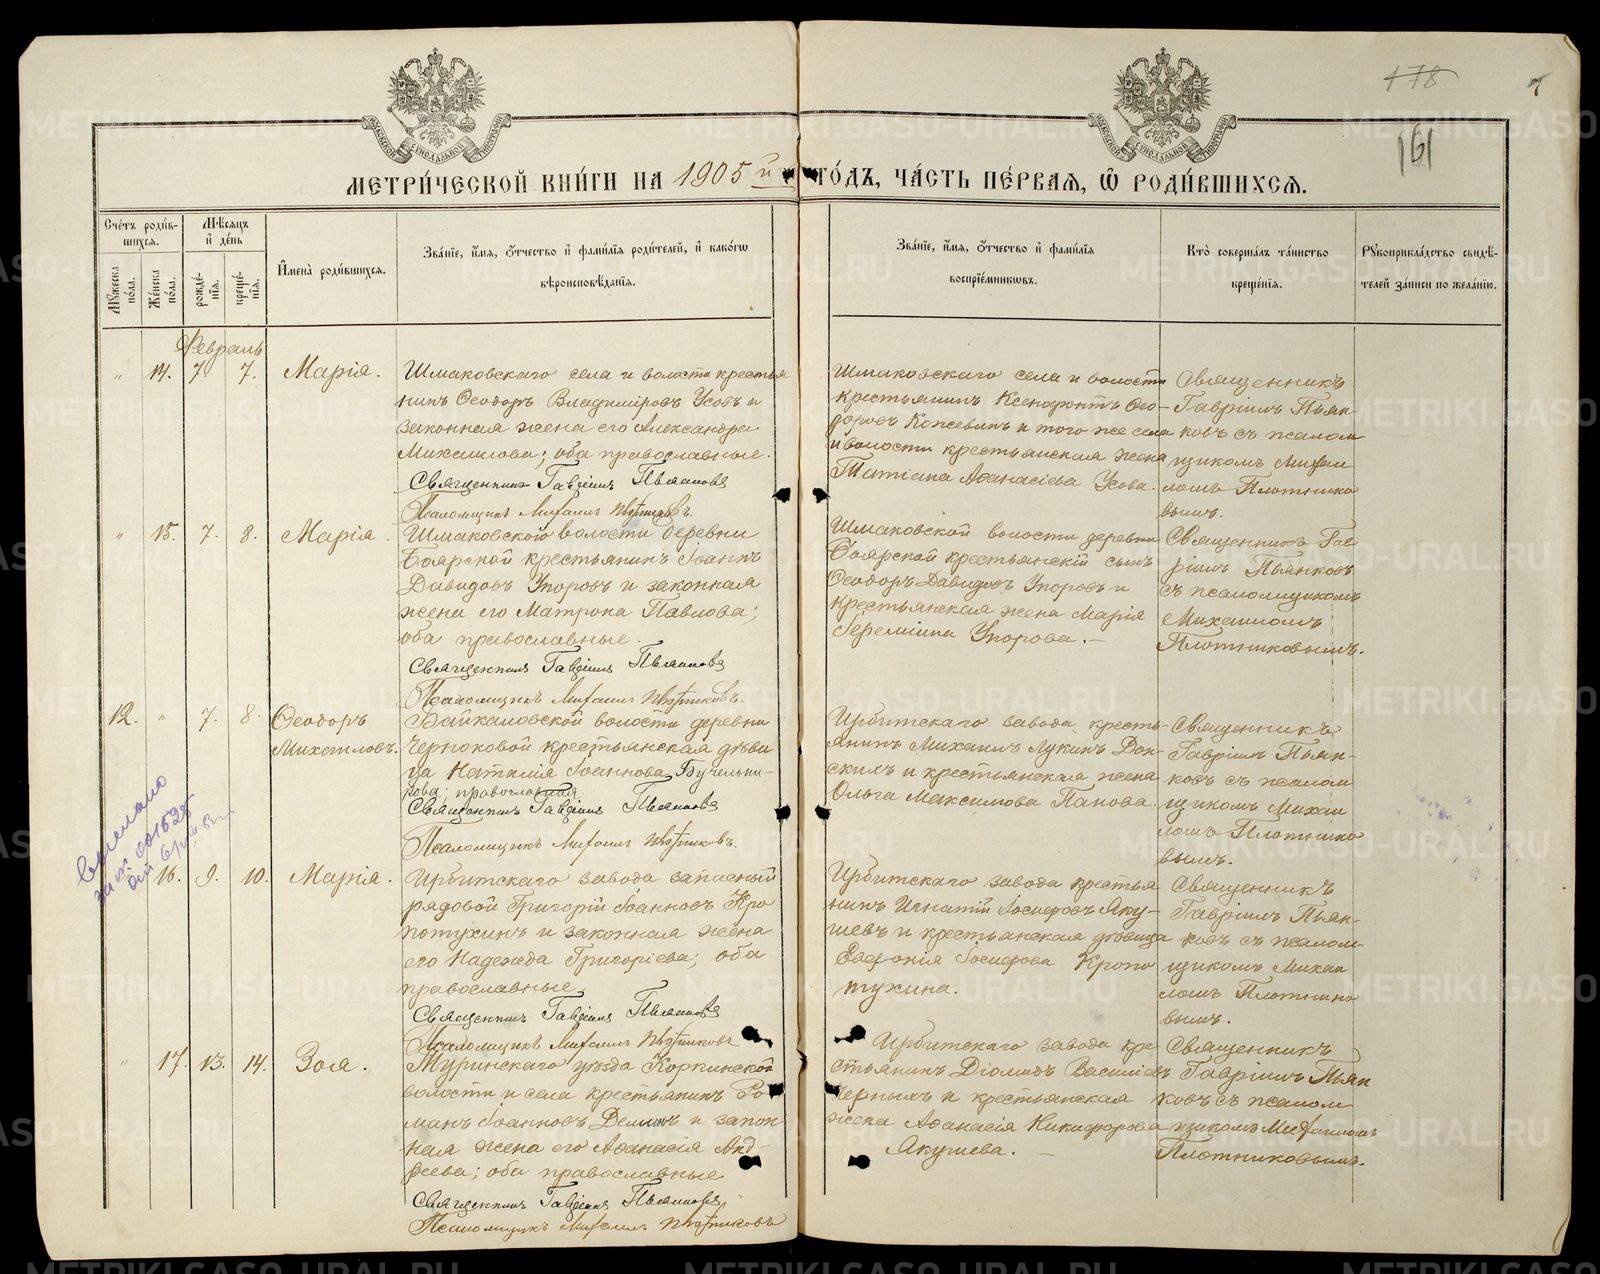 178
7
161
МОСКОВСКОЙ СѴНОДАЛЬНОЙ ТИПОГРАФІИ
МОСКОВСКОЙ СѴНОДАЛЬНОЙ ТИПОГРАФІИ
МЕТРИ́ЧЕСКОЙ КНИ́ГИ НА 1905й ГО́ДЪ, ЧА́СТЬ ПЕ́РВАЯ, Ѡ РОДИ́ВШИХСЯ.
Сче́тъ роди́в-
шихся.
Мѣ́сяцъ
и҆ де́нь
Мꙋ́жеска
по́ла.
Же́нска
по́ла.
рожде́-
нїя.
креще́-
нїя.
И҆мена̀ роди́вшихся.
Зва́нїе, и҆́мя, ѻ҆́тчество и҆ фами́лїя роди́телей, и҆ како́гѡ
вѣроисповѣ́данїя.
Зва́нїе, и҆́мя, ѻ҆́тчество и҆ фами́лїя
воспрїе́мникѡвъ.
Кто̀ соверша́лъ та́инство
креще́нїя.
Рꙋкоприкла́дство свидѣ́-
телей за́писи по жела́нїю.
Февраль
„ 14. 7. 7. Марія.
Шмаковскаго села и волости крестья
нинъ Ѳеодоръ Владиміровъ Усовъ и
законная жена его Александра
Михаилова; оба православные.
Священникъ Гавріилъ Пьянковъ
Псаломщикъ Михаилъ Плотниковъ.
Шмаковскаго села и волости
крестьянинъ Ксенофонтъ Ѳео-
доровъ Кожевинъ и того же села
и волости крестьянская жена
Татіана Аѳанасіева Усова.
Священникъ
Гавріилъ Пьян-
ковъ съ псалом
щикомъ Михаи
ломъ Плотнико
вымъ.
„ 15. 7. 8. Марія.
Шмаковской волости деревни
Боярской крестьянинъ Іоаннъ
Давидовъ Упоровъ и законная
жена его Матрона Павлова;
оба православные.
Священникъ Гавріилъ Пьянковъ
Псаломщикъ Михаилъ Плотниковъ.
Шмаковской волости деревни
Боярской крестьянскій сынъ
Ѳеодоръ Давидовъ Упоровъ и
крестьянская жена Марія
Іереміина Упорова.
Священникъ Гав
ріилъ Пьянковъ
съ псаломщикомъ
Михаиломъ
Плотниковымъ.
12. „ 7. 8. Ѳеодоръ
Михаиловъ.
Байкаловской волости деревни
Чернюковой крестьянская дѣви
ца Наталія Іоаннова Бучельни-
кова; православная.
Священникъ Гавріилъ Пьянковъ
Псаломщикъ Михаилъ Плотниковъ.
Ирбитскаго завода кресть-
янинъ Михаилъ Лукинъ Дон-
скихъ и крестьянская жена
Ольга Максимова Панова.
Священникъ
Гавріилъ Пьян-
ковъ съ псалом
щикомъ Михаи
ломъ Плотнико
вымъ.
„ 16. 9. 10. Марія.
Ирбитскаго завода запасный
рядовой Григорій Іоанновъ Кро
потухинъ и законная жена
его Надежда Григоріева; оба
православные.
Священникъ Гавріилъ Пьянковъ
Псаломщикъ Михаилъ Плотниковъ
Ирбитскаго завода крестья
нинъ Игнатій Іосифовъ Яку-
шевъ и крестьянская дѣвица
Евфонія Іосифова Кропо
тухина.
Священникъ
Гавріилъ Пьян-
ковъ съ псалом-
щикомъ Михаи
ломъ Плотнико
вымъ.
„ 17. 13. 14. Зоя.
Туринскаго уѣзда Коркинской
волости и села крестьянинъ Ро
манъ Іоанновъ Деминъ и закон
ная жена его Аѳанасія Анд-
реева; оба православные
Священникъ Гавріилъ Пьянковъ
Псаломщикъ Михаилъ Плотниковъ
Ирбитскаго завода кре-
стьянинъ Діомидъ Василіевъ
Черныхъ и крестьянская
жена Аѳанасія Никифорова
Якушева.
Священникъ
Гавріилъ Пьян
ковъ съ псалом
щикомъ Михаиломъ
Плотниковымъ.
METRIKI.GASO-URAL.RU